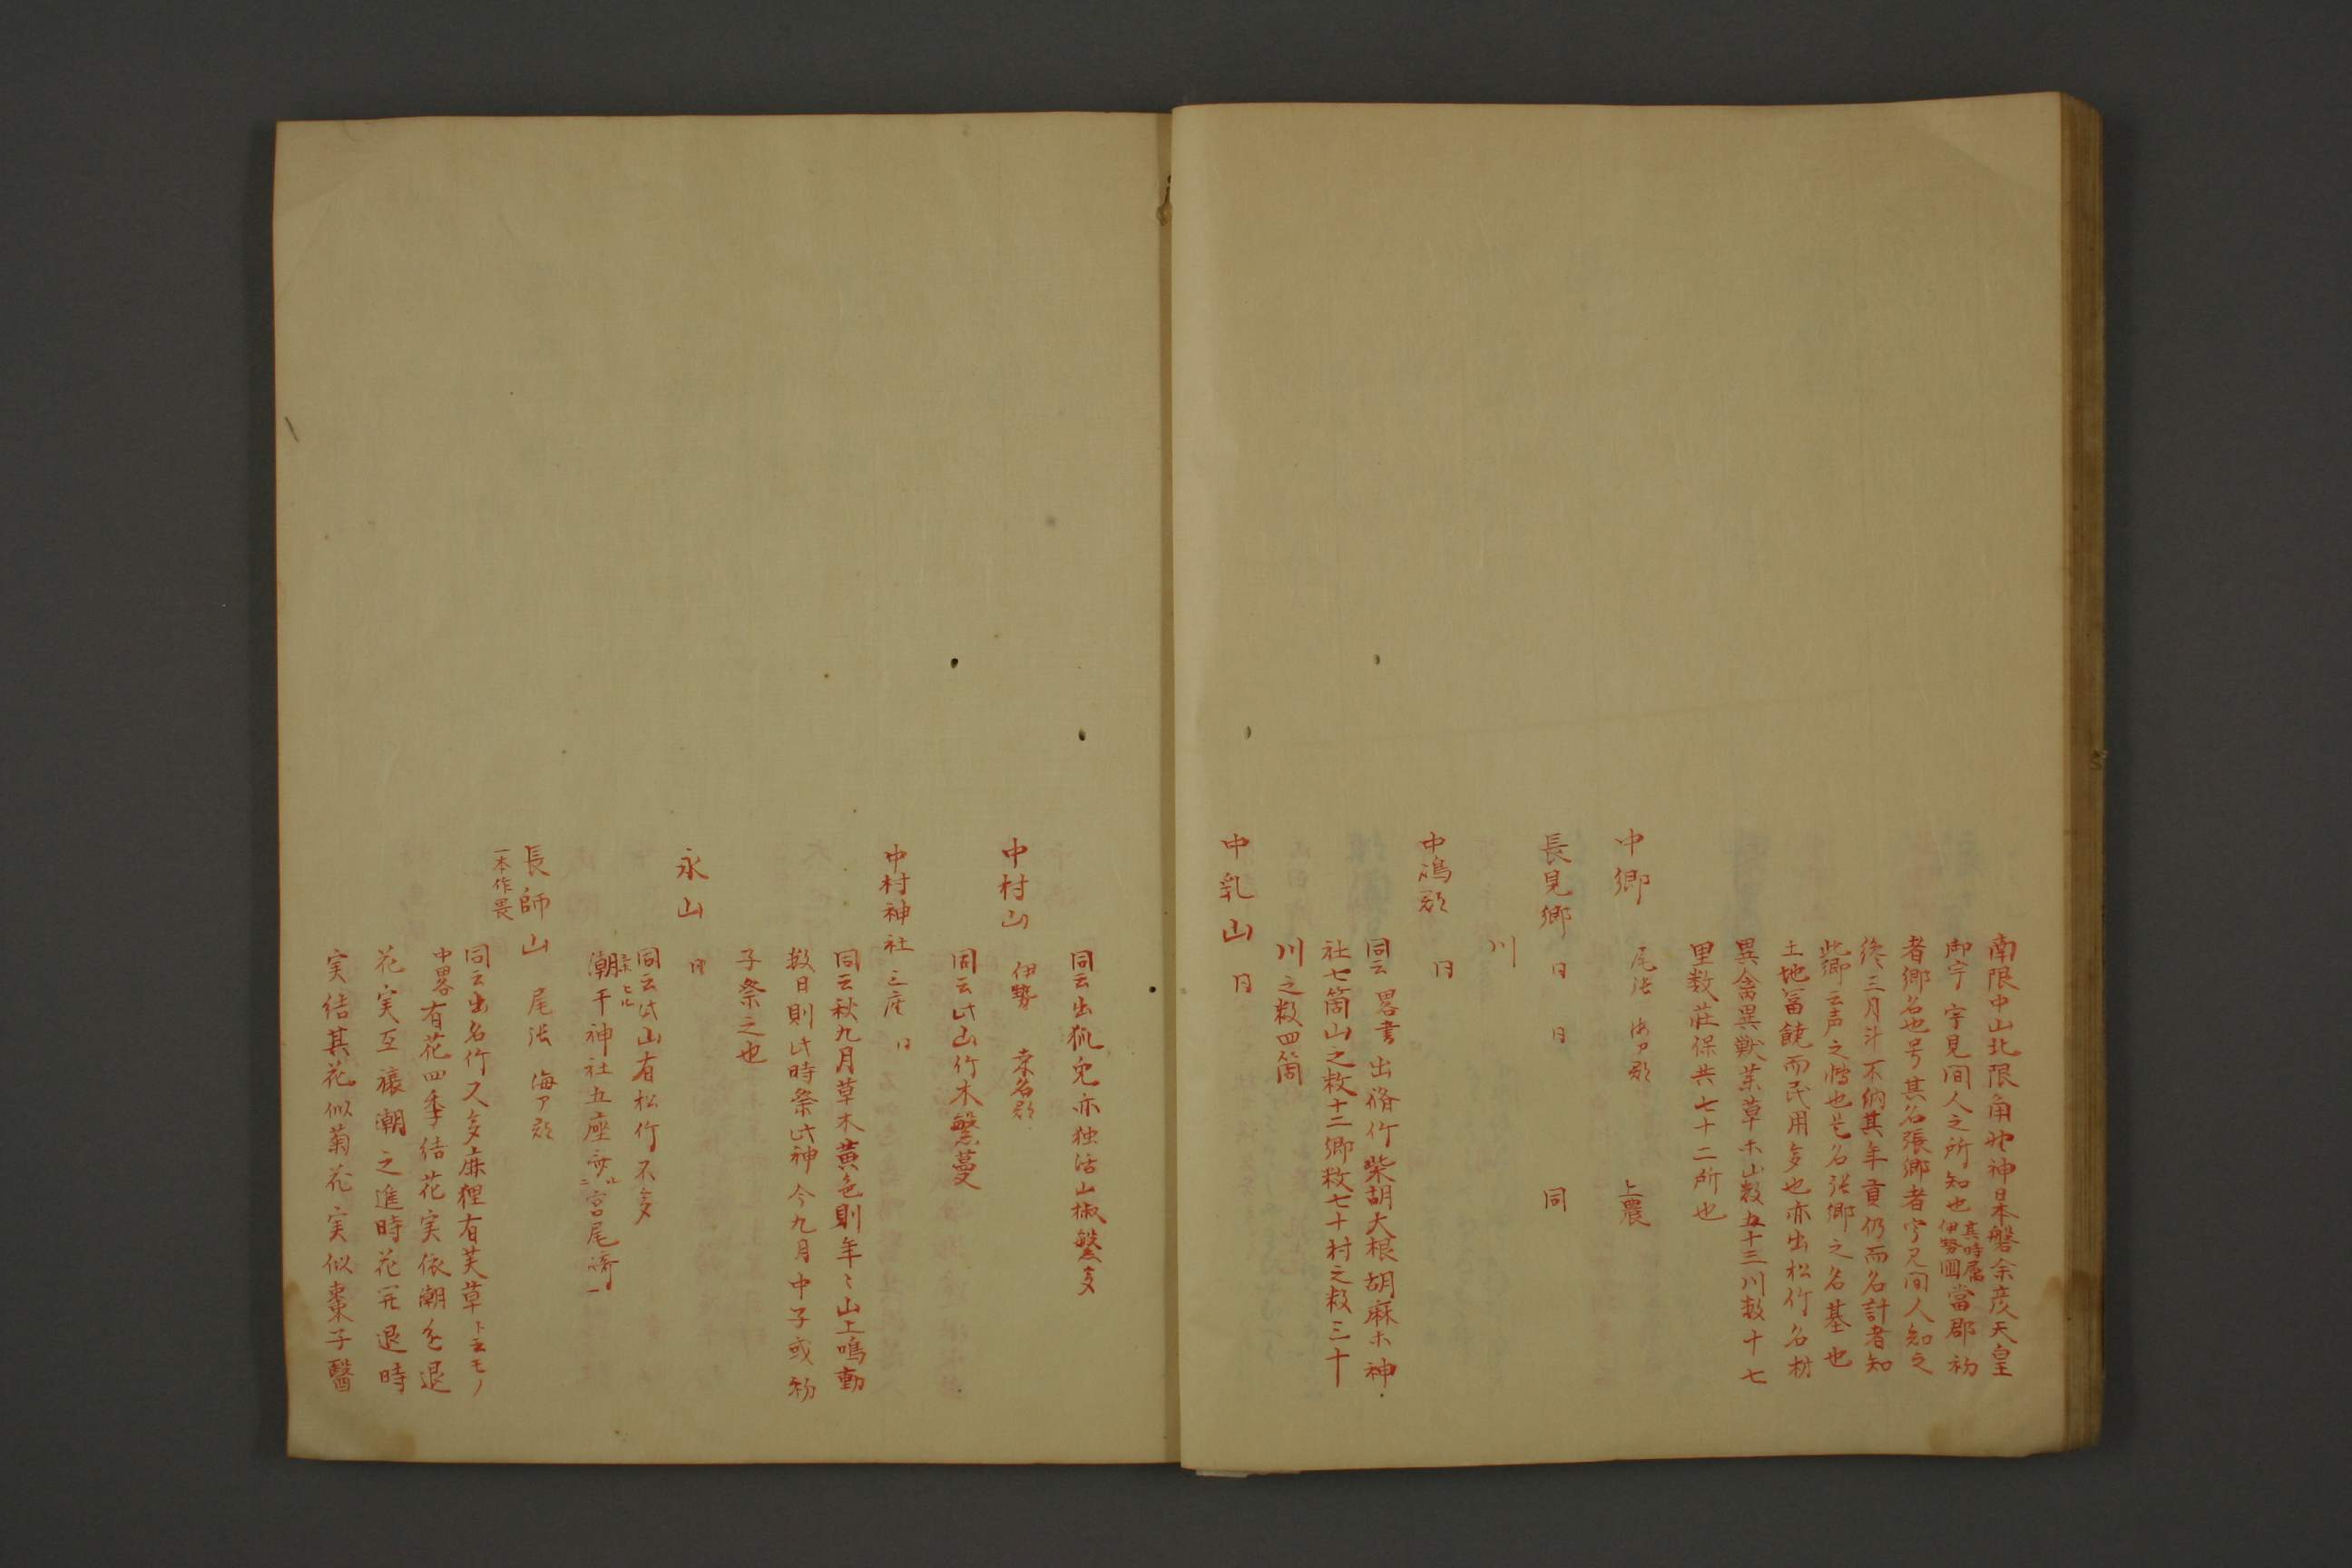 南限中山北限角也神日本磐余彦天皇
御宇 字見間人之所知也其時属伊勢國當郡初
者郷名也号其名張郷者字見間人知之
終三月斗不納其年貢仍而名計者知
此郷云声之博也是名張郷之名基也
土地冨饒而民用多也亦出松竹名材
異禽異獣茱草木山数五十三川数十七
里数荘保共七十二所也
中郷 尾張 海ア郡 上農
長見郷 日 日 同
川
中嶋郡 日
同云 畧書 出脩竹柴胡大根胡麻木神
社七箇山之数十二郷数七十村之数三十
川之数四箇
中乳山 日
同云出狐兎亦独活山椒繁多
中村山 伊勢 桒名郡
同云此山竹木繁蔓
中村神社 三座 日
同云秋九月草木黄色則年〻山上鳴動
数日則此時祭此神今九月中子或初
子祭之也
永山 日
同云此山有松竹不多
潮干神社五座
長師山 尾張 海ア郡
一本作畏
同云出名竹又多麻狸有芙草ト云モノ
中畧有花四季結花実依潮進退
花実互禳潮之進時花開退時
実結其花似菊花実似棗子醫